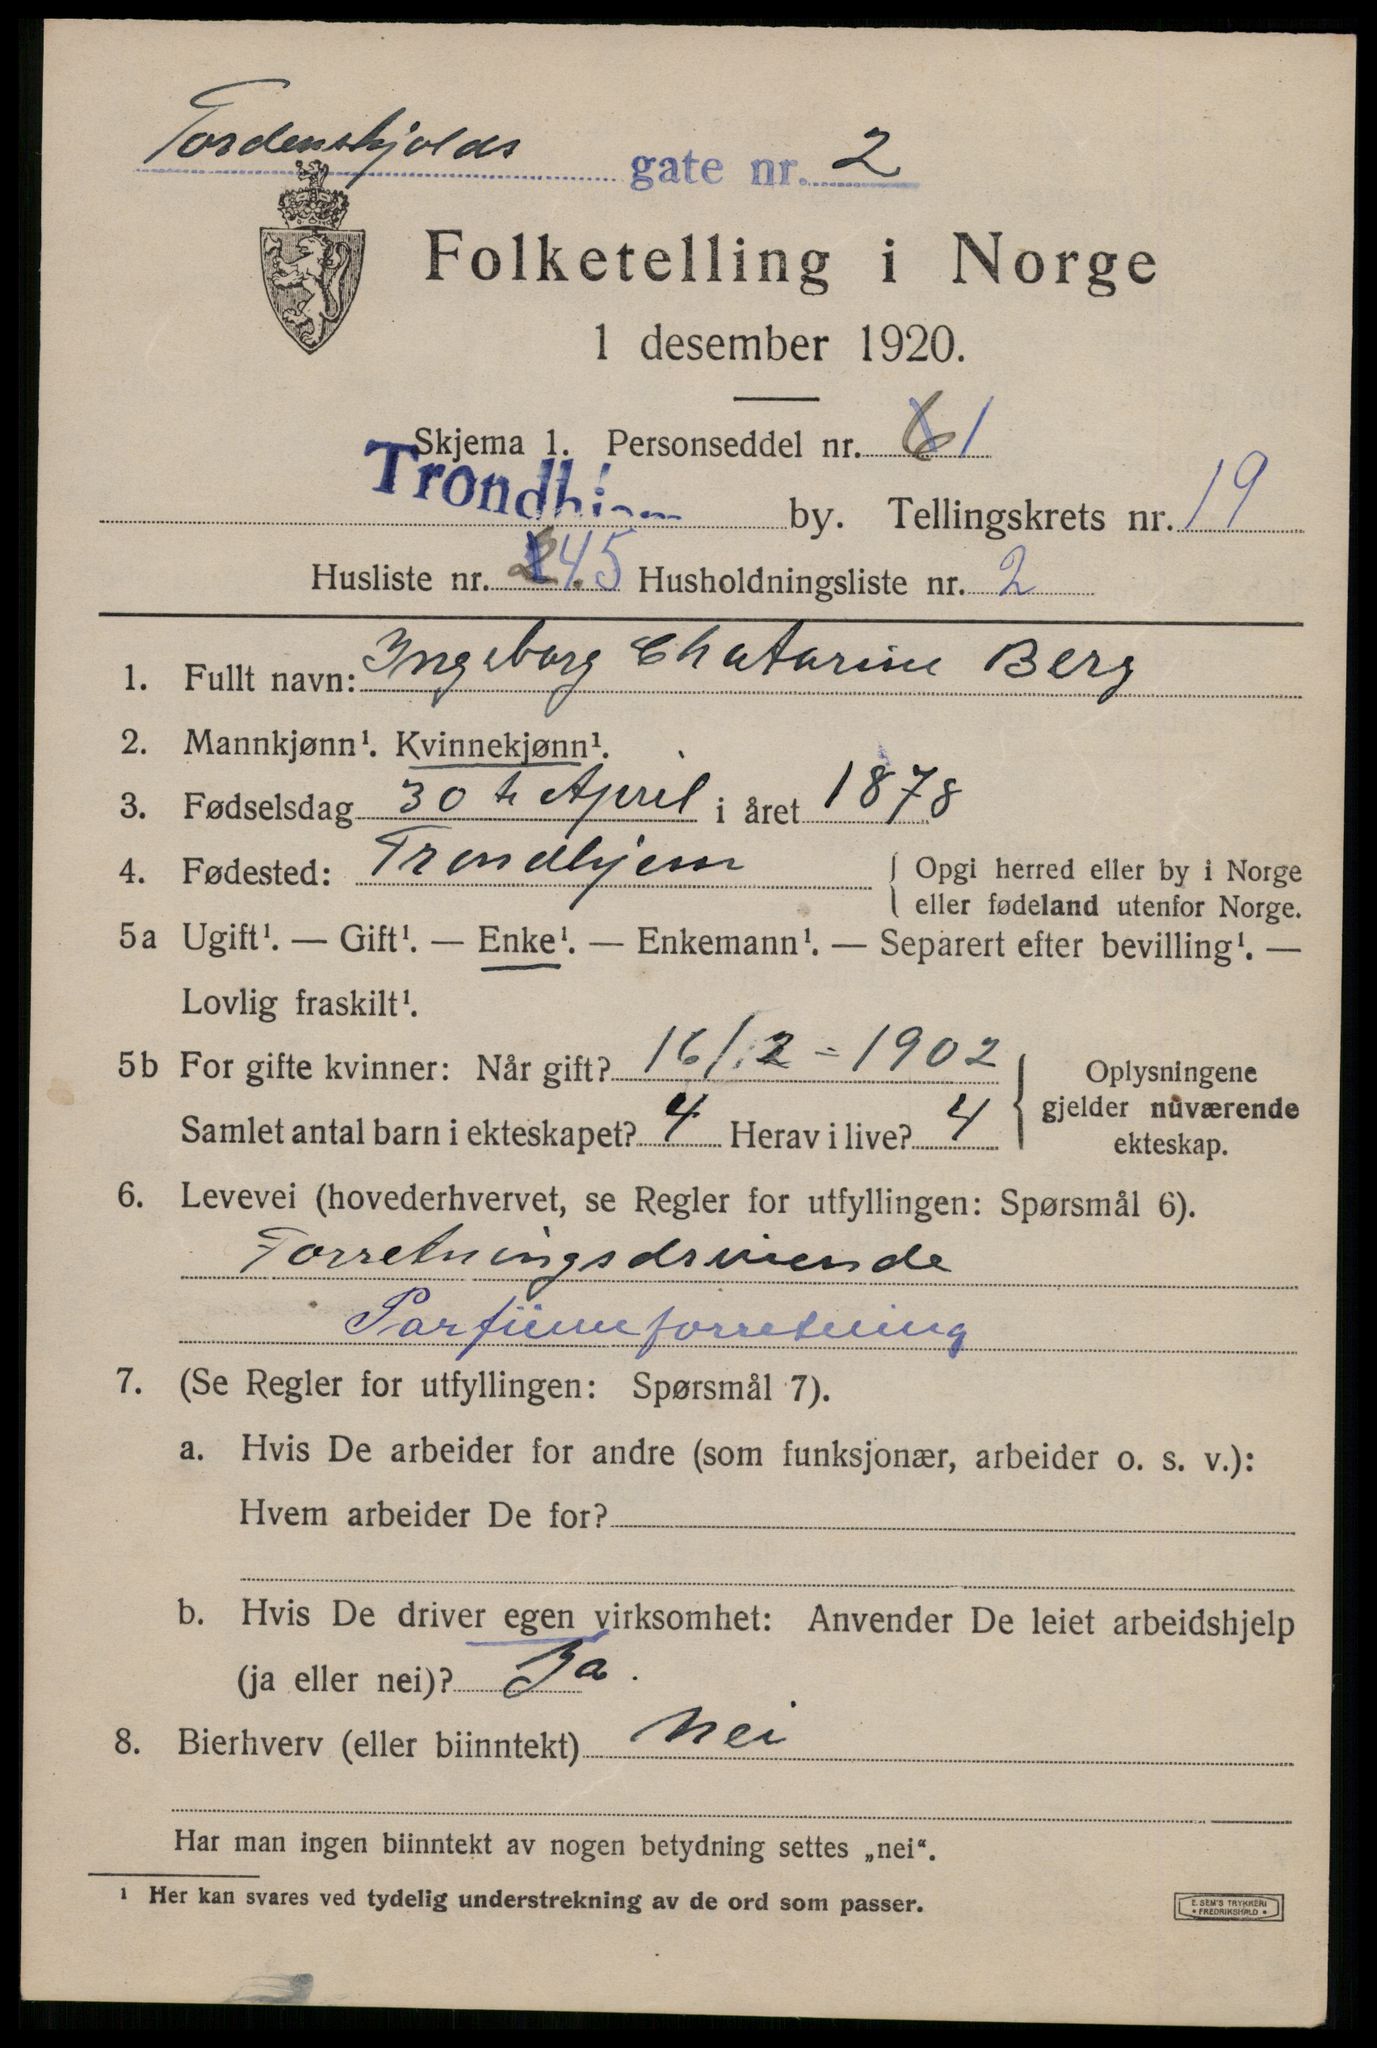 Tordenskjolds gate nr. 2
Folketelling i Norge
1 desember 1920.
Skjema 1. Personseddel nr. 1
Trondhjem by. Tellingskrets nr. 19
Husliste nr. 45 Husholdningsliste nr. 2
1. Fullt navn: Ingeborg Chatarine Berg
2. Mannkjønn¹. Kvinnekjønn¹.
3. Fødselsdag 30 te April i året 1878
4. Fødested: Trondhjem { Opgi herred eller by i Norge
eller fødeland utenfor Norge.
5a Ugift¹. — Gift¹. — Enke¹. — Enkemann¹. — Separert efter bevilling¹. —
Lovlig fraskilt¹.
5b For gifte kvinner: Når gift? 16/12 - 1902
Samlet antal barn i ekteskapet? 4 Herav i live? 4
Oplysningene
gjelder nuværende
ekteskap.
6. Levevei (hovederhvervet, se Regler for utfyllingen: Spørsmål 6).
Forretningsdrivende
Parfümeforretning
7. (Se Regler for utfyllingen: Spørsmål 7).
a. Hvis De arbeider for andre (som funksjonær, arbeider o. s. v.):
Hvem arbeider De for?
b. Hvis De driver egen virksomhet: Anvender De leiet arbeidshjelp
(ja eller nei)? Ja.
8. Bierhverv (eller biinntekt) Nei
Har man ingen biinntekt av nogen betydning settes „nei“.
¹ Her kan svares ved tydelig understrekning av de ord som passer.
E. SEM'S TRYKKERI
• FREDRIKSHALD •